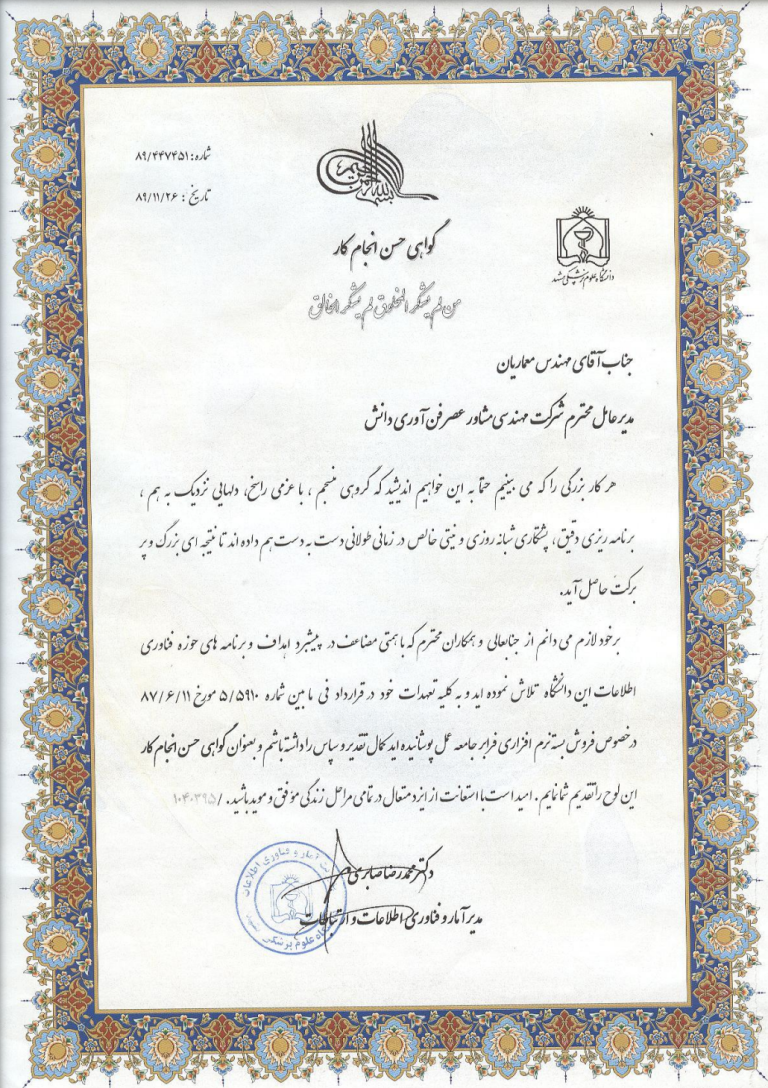 بسم الله الرحمن الرحیم
شماره: ۸۹/۴۴۷۴۵۱
تاریخ: ۸۹/۱۱/۲۶
دانشگاه علوم پزشکی مشهد
گواهی حسن انجام کار
من لم یشکر المخلوق لم یشکر الخالق
جناب آقای مهندس معماریان
مدیر عامل محترم شرکت مهندسی مشاور عصر فن آوری دانش
هر کار بزرگی را که می بینیم حتماً به این خواهیم اندیشید که گروهی منسجم ، با عزمی راسخ، دلهایی نزدیک به هم ،
برنامه ریزی دقیق ، پشتکاری شبانه روزی و نیتی خالص در زمانی طولانی دست به دست هم داده اند تا نتیجه ای بزرگ و پر
برکت حاصل آید.
برخود لازم می دانم از جنابعالی و همکاران محترم که با همتی مضاعف در پیشبرد اهداف و برنامه های حوزه فناوری
اطلاعات این دانشگاه تلاش نموده اید و به کلیه تعهدات خود در قرارداد فی مابین شماره ۵/۵۹۱۰ مورخ ۸۷/۶/۱۱
درخصوص فروش بسته نرم افزاری فرابر جامعه عمل پوشانیده اید کمال تقدیر و سپاس را داشته باشم و بعنوان گواهی حسن انجام کار
این لوح را تقدیم شما نمایم . امید است با استعانت از ایزد متعال در تمامی مراحل زندگی موفق و موید باشید. /۱۰۴۰۳۹۵
دکتر محمدرضا صابری
مدیر آمار و فناوری اطلاعات و ارتباطات
آمار و فناوری اطلاعات
علوم پزشکی